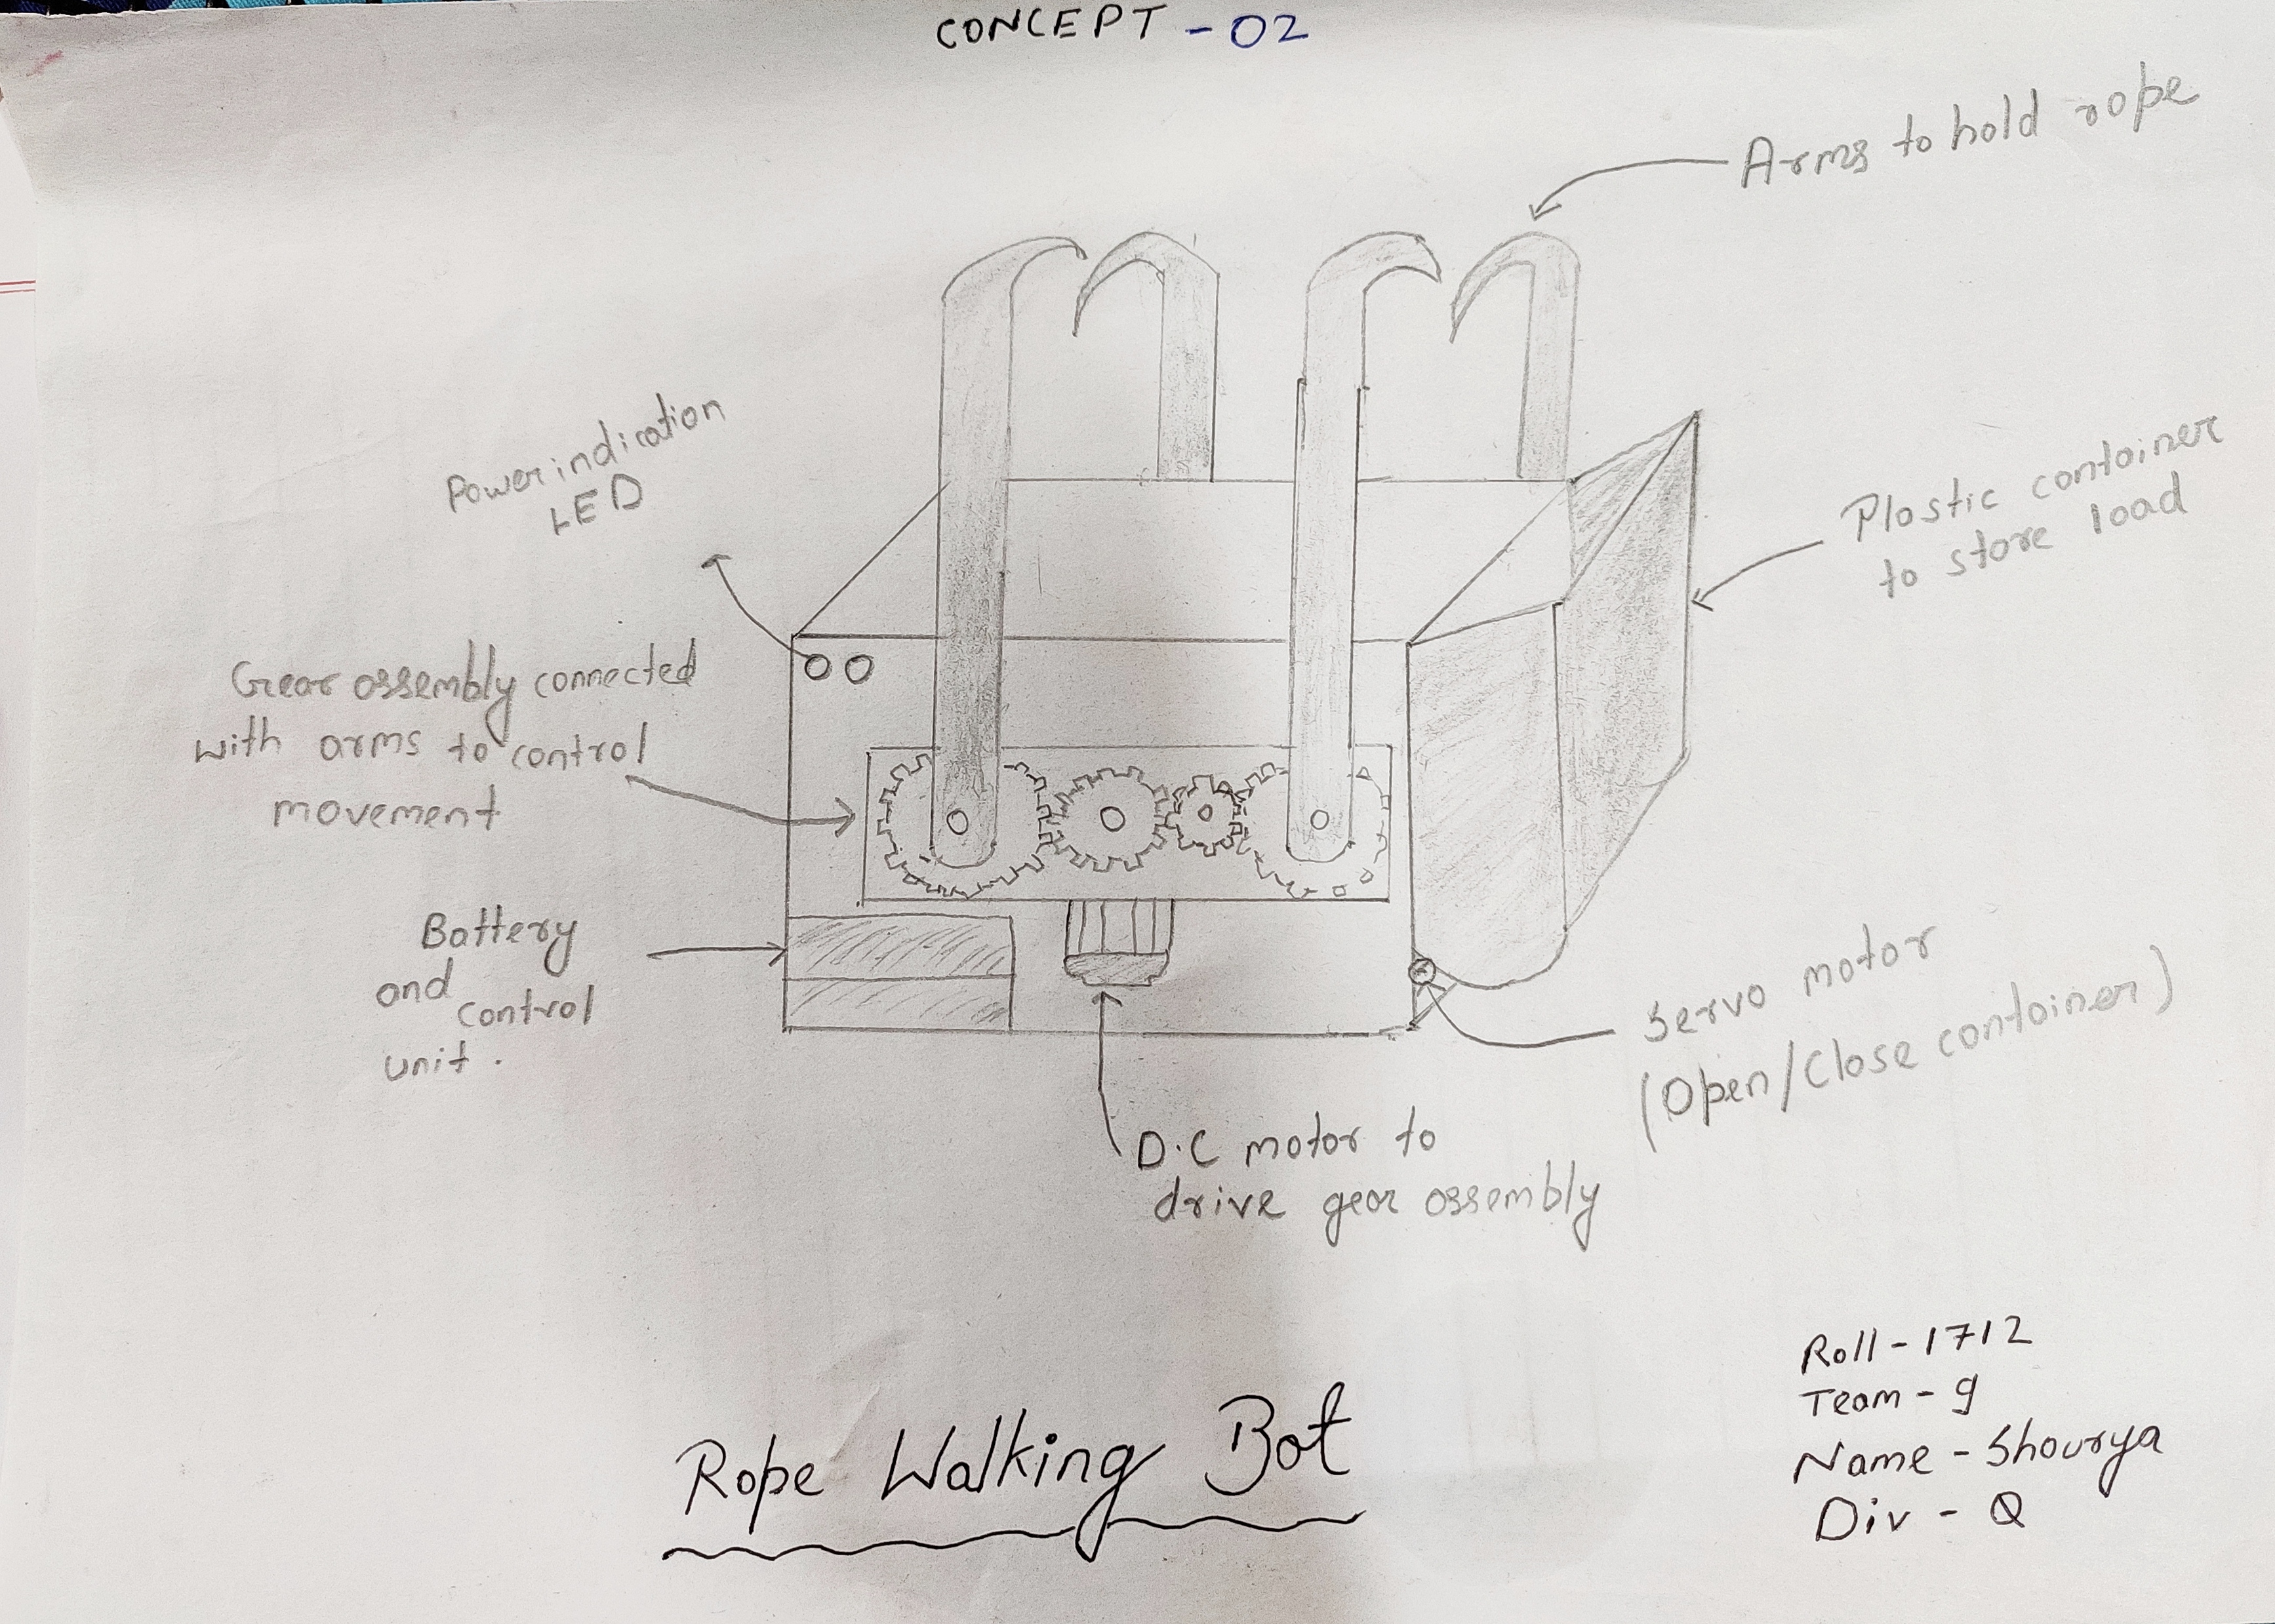 CONCEPT - 02
Arms to hold rope
Power indication
LED
Plastic container
to store load
Gear assembly connected
with arms to control
movement
Battery
and
control
unit .
Servo motor
(Open/Close container)
D.C motor to
drive gear assembly
Rope Walking Bot
Roll - 1712
Team - 9
Name - Shourya
Div - Q